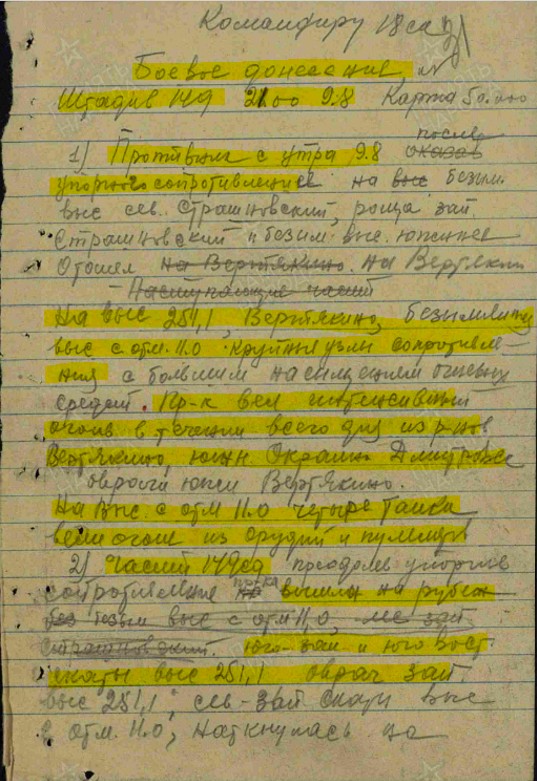 Командиру 18 ск
Боевое донесение №
Штадив 149 21.00 9.8 Карта 50.000
после
1) Противник с утра 9.8 оказав
упорного сопротивления на выс безым.
выс сев. Страшновский, роща зап.
Страшновский и безым. выс. южнее
Отошел на Вертякино. на Вертякин
Наступающие части
На выс 251,1, Вертякино, безымянну
выс с отм. 11.0 крупные узлы сопротивле-
ния с большим насыщением огневых
средств. Пр-к вел интенсивный
огонь в течении всего дня из р-нов
Вертякино, южн. Окраины Дмитровка
овраги южн Вертякино.
На выс. с отм 11.0 четыре танка
вели огонь из орудий и пулемётов
2) Части 149 сд преодолев упорное
сопротивление вышли на рубеж
без безым выс с отм 11,0, зап
Страшновский. юго-зап и юго вост
скаты выс 251,1 овраг зап.
выс 251,1; сев-зап скаты выс
с отм. 11.0, наткнулась на